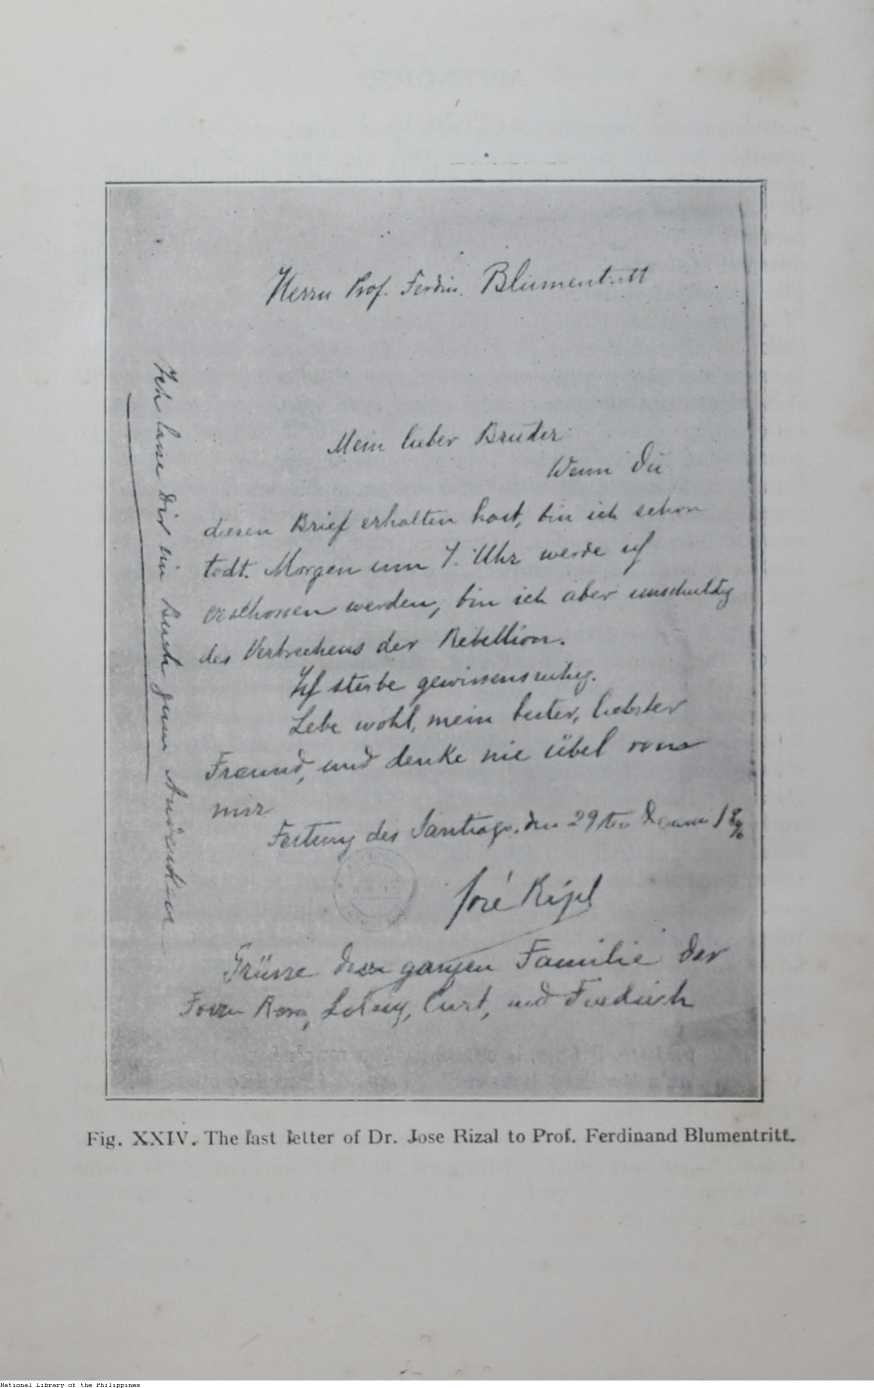 Herrn Prof. Ferdin. Blumentritt
Mein lieber Bruder
Wenn Du
diesen Brief erhalten hast, bin ich schon
todt. Morgen um 7. Uhr werde ich
erschossen werden, bin ich aber unschuldig
des Verbrechens der Rebellion.
Ich sterbe gewissensruhig.
Lebe wohl, mein bester, liebster
Freund, und denke nie übel von
mir
Festung des Santiago, den 29ten
José Rizal
Grüsse der ganzen Familie der
Frau Rosa, Loleng, Curt, und Friedrich
Ich lasse Dir ein Buch zum Andenken
Fig. XXIV. The last letter of Dr. Jose Rizal to Prof. Ferdinand Blumentritt.
National Library of the Philippines